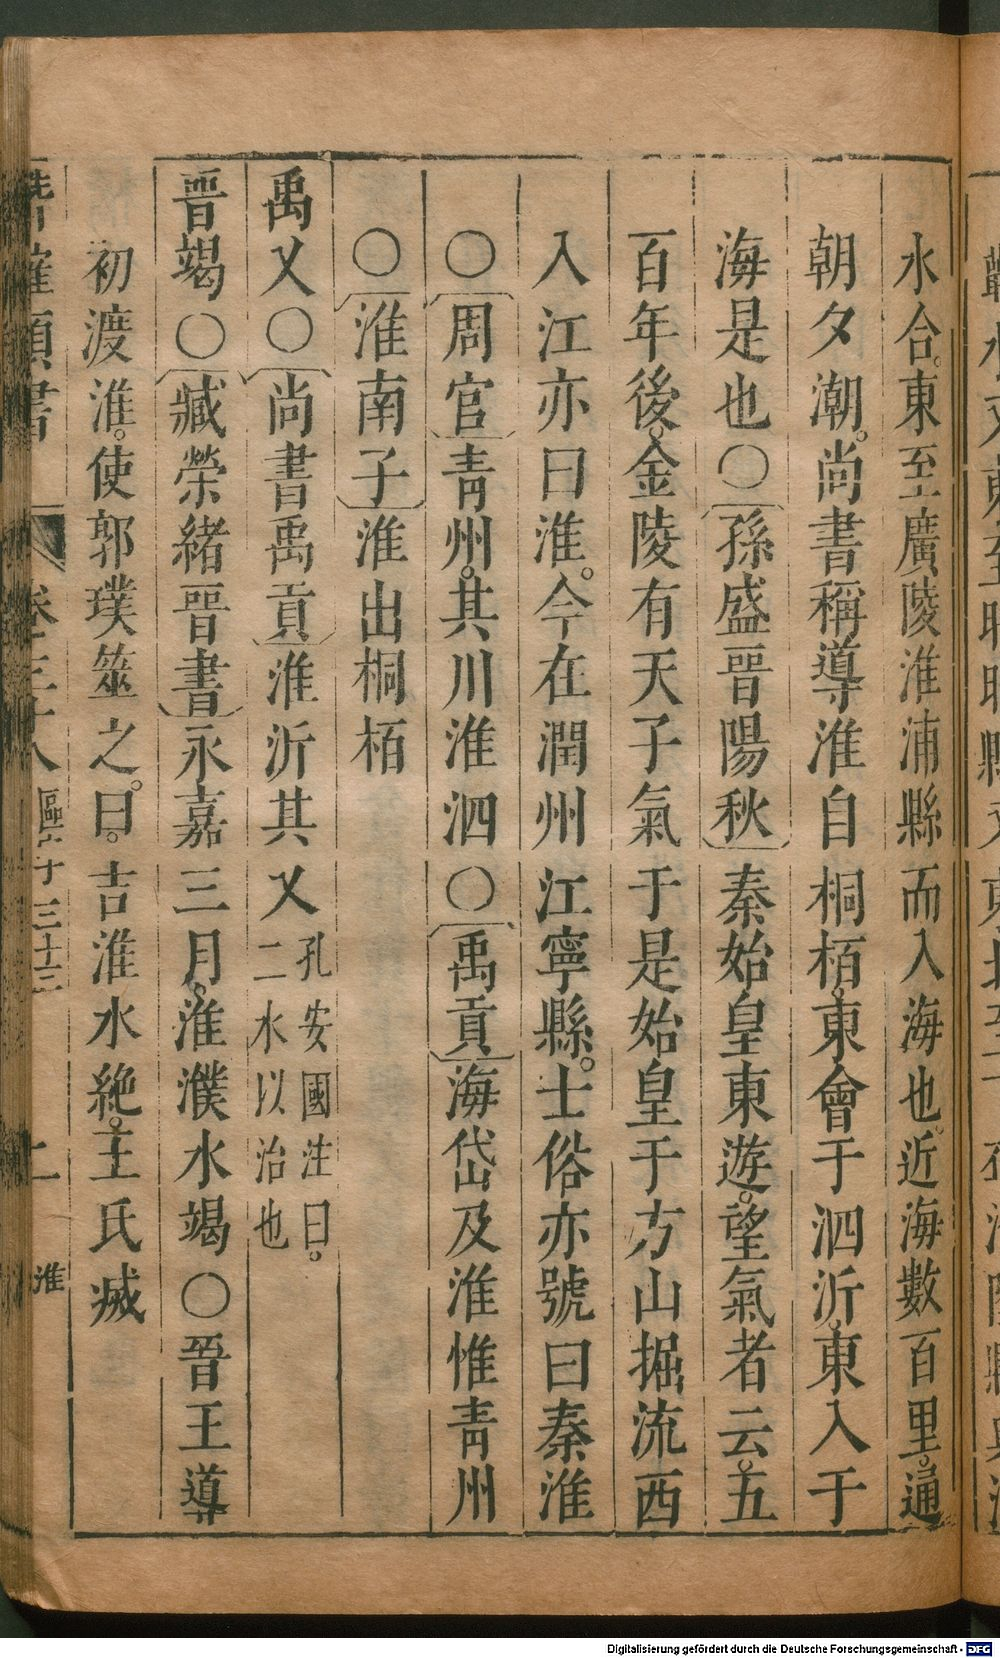 水合東至廣陵淮浦縣而入海也近海數百里通
朝夕潮尚書稱導淮自桐栢東會于泗沂東入于
海是也〇孫盛晉陽秋秦始皇東遊望氣者云五
百年後金陵有天子氣于是始皇于方山掘流西
入江亦曰淮今在潤州江寧縣士俗亦號曰秦淮
〇周官青州其川淮泗〇禹貢海岱及淮惟青州
〇淮南子淮出桐栢
禹乂〇尚書禹貢淮沂其乂孔安國注曰二水以治也
晉竭〇臧榮緒晉書永嘉三月淮濮水竭〇晉王導
初渡淮使郭璞筮之曰吉淮水絶王氏滅
類書 卷三十八 區 三十三 二 淮
Digitalisierung gefördert durch die Deutsche Forschungsgemeinschaft - DFG